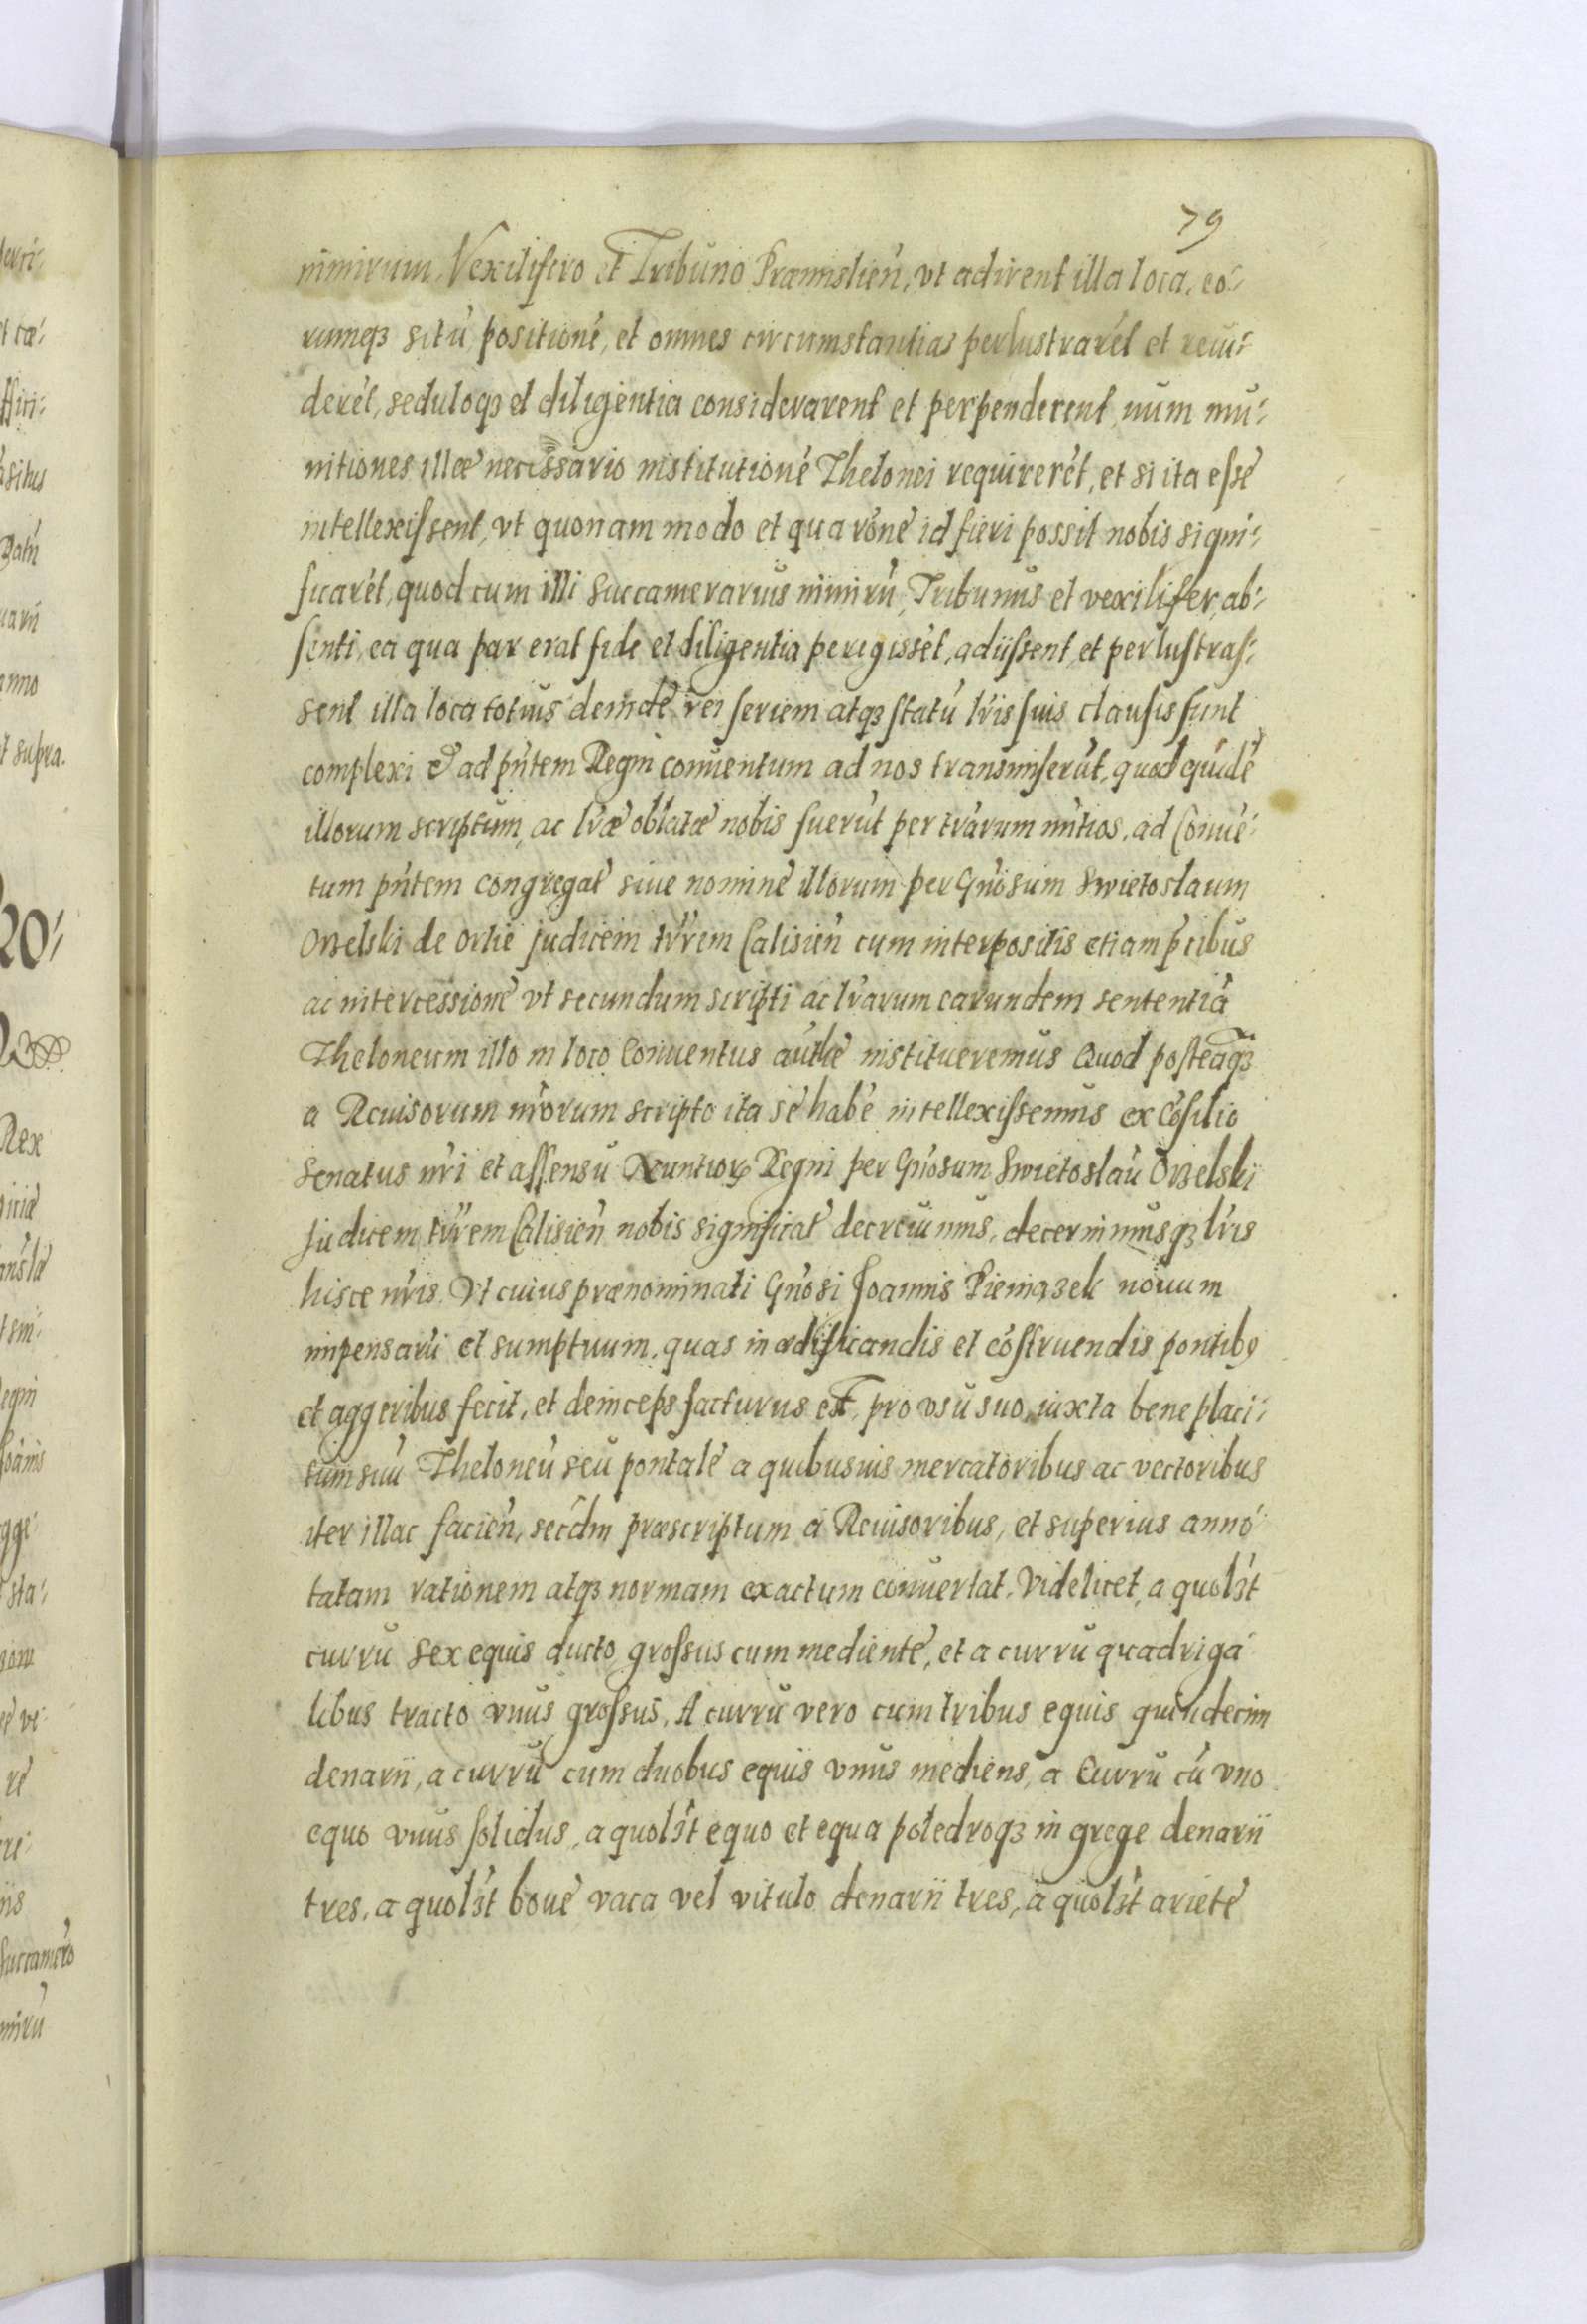 79
nimirum Vexilifero et Tribuno Præmislień, vt adirent illa loca, eo⸗
rumqꝫ sitū positionē, et omnes circumstantias perlustrarēt et reui⸗
derēt, seduloqꝫ et diligentia considerarent et perpenderent, num mu⸗
nitiones illæ necessario institutionē Thelonei requirerēt, et si ita esse
intellexissent, vt quonam modo et qua rōne id fieri possit nobis signi⸗
ficarēt, quod cum illi Succamerarius nimirū, Tribunus et vexilifer, ab⸗
senti, ea qua par erat fide et diligentia peregissēt, adiissent et perlustras⸗
sent illa loca totius deinde rei seriem atqꝫ statū lr̄is suis clausis sunt
complexi & ad pn̄tem Regni conuentum ad nos transmiserūt, quod quidē
illorum scriptum, ac lr̄æ oblatæ nobis fuerūt per tr̄arum nn̄tios, ad Conuē⸗
tum pn̄tem congregat̄ siue nomine illorum per Gn̄osum Swietoslaum
Orzelski de Orlie judicem tr̄rem Calisień cum interpositis etiam p̄cibus
ac intercessione vt secundum scripti ac lr̄arum earundem sententiā
Theloneum illo in loco Conuentus aut̄he institueremus Quod posteaqꝫ
a Reuisorum nr̄orum scripto ita se habē intellexissemus ex cōsilio
Senatus nr̄i et assensu Nuntiorꝝ Regni per Gn̄osum Swietoslaū Orzelski
Judicem tr̄rem Calisień nobis significat̄ decreuimus, decernimusqꝫ lr̄is
hisce nr̄is Vt cuius prænominati Gn̄osi Joannis Pieniązek nouum
impensarū et sumptuum, quas in ædificandis et cōstruendis pontibꝰ
et aggeribus fecit, et deinceps facturus est, pro vsu suo, iuxta beneplaci⸗
tum suū Theloneū seu pontale a quibusuis mercatoribus ac vectoribus
iter illac facień, secdm̄ præscriptum a Reuisoribus, et superius anno
tatam rationem atqꝫ normam exactum conuertat. Videlicet, a quolīt
curru sex equis ducto grossus cum mediente, et a curru quadriga
libus tracto vnus grossus. A curru vero cum tribus equis quindecim
denarii, a curru cum duobus equis vnus mediens, a Curru cū vno
equo vnus solidus, a quolīt equo et equa poledroqꝫ in grege denarii
tres, a quolīt boue vaca vel vitulo denarii tres, a quolīt ariete